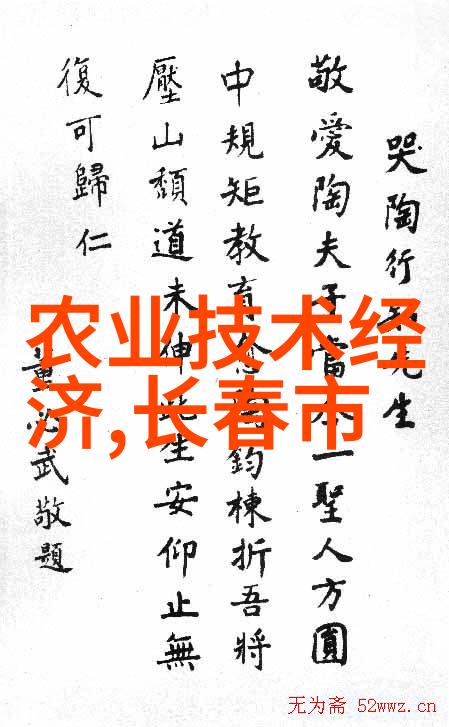 哭陶行知先生
敬愛陶夫子當今一聖人方圓
中規矩教育鈞棟折吾將
壓山頹道未伸此生安仰止無
復可歸仁
董必武敬題
农业技术经
济,长春市
无为斋 52wwz.cn